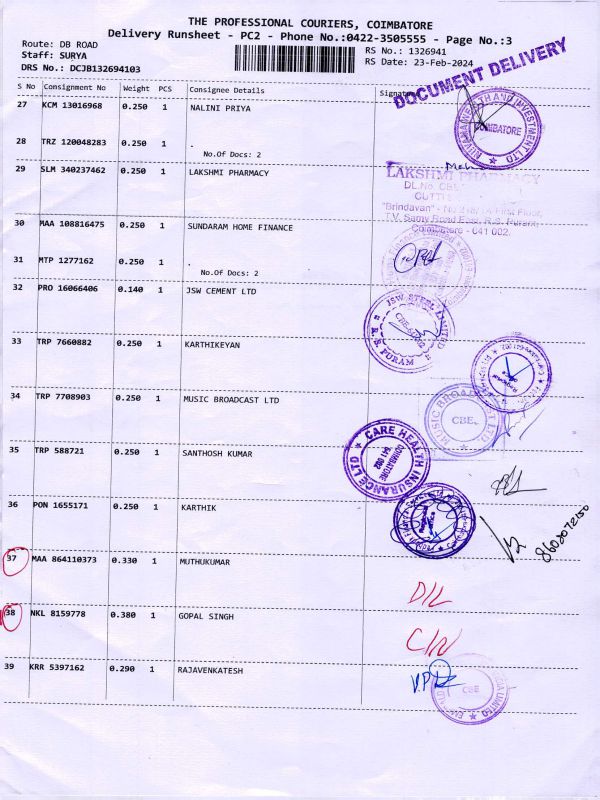 THE PROFESSIONAL COURIERS, COIMBATORE
Delivery Runsheet - PC2 - Phone No.:0422-3505555 - Page No.:3
Route: DB ROAD
Staff: SURYA
DRS No.: DCJB132694103
RS No.: 1326941
RS Date: 23-Feb-2024
DOCUMENT DELIVERY
S No Consignment No Weight PCS Consignee Details Signature
27 KCM 13016968 0.250 1 NALINI PRIYA
COIMBATORE
28 TRZ 120048283 0.250 1 .
No.Of Docs: 2
29 SLM 340237462 0.250 1 LAKSHMI PHARMACY
LAKSHMI PHARMACY
DL.No. CBE
"Brindavan" - No 278/1A First Floor,
T.V. Samy Road East, R.S. Puram,
Coimbatore - 641 002.
30 MAA 108816475 0.250 1 SUNDARAM HOME FINANCE
31 MTP 1277162 0.250 1 .
No.Of Docs: 2
32 PRO 16066406 0.140 1 JSW CEMENT LTD
JSW STEEL LIMITED
R.S. PURAM
33 TRP 7660882 0.250 1 KARTHIKEYAN
34 TRP 7708903 0.250 1 MUSIC BROADCAST LTD
MUSIC BROADCAST LTD
CBE
35 TRP 588721 0.250 1 SANTHOSH KUMAR
CARE HEALTH INSURANCE LTD
COIMBATORE
641 002
36 PON 1655171 0.250 1 KARTHIK
8602072150
37 MAA 864110373 0.330 1 MUTHUKUMAR
D/L
38 NKL 8159778 0.380 1 GOPAL SINGH
C/N
39 KRR 5397162 0.290 1 RAJAVENKATESH
CBE